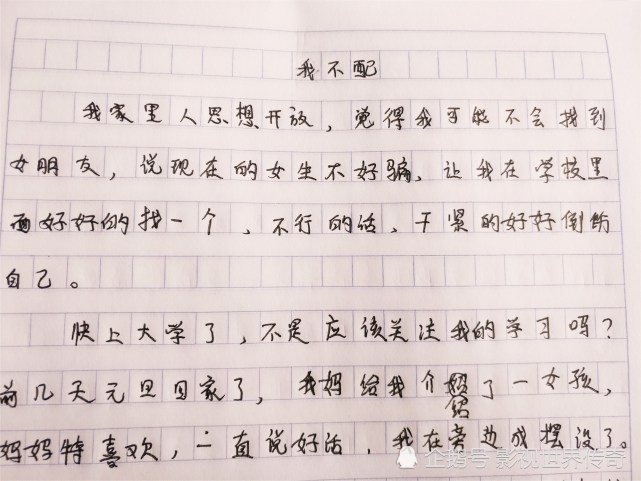 我不配
我家里人思想开放，觉得我可能不会找到
女朋友，说现在的女生不好骗，让我在学校里
面好好的找一个，不行的话，干紧的好好倒饬
自己。
快上大学了，不是应该关注我的学习吗？
前几天元旦回家了，我妈给我介绍了一女孩，
妈妈特喜欢，一直说好话，我在旁边成摆设了。
企鹅号 影视世界传奇